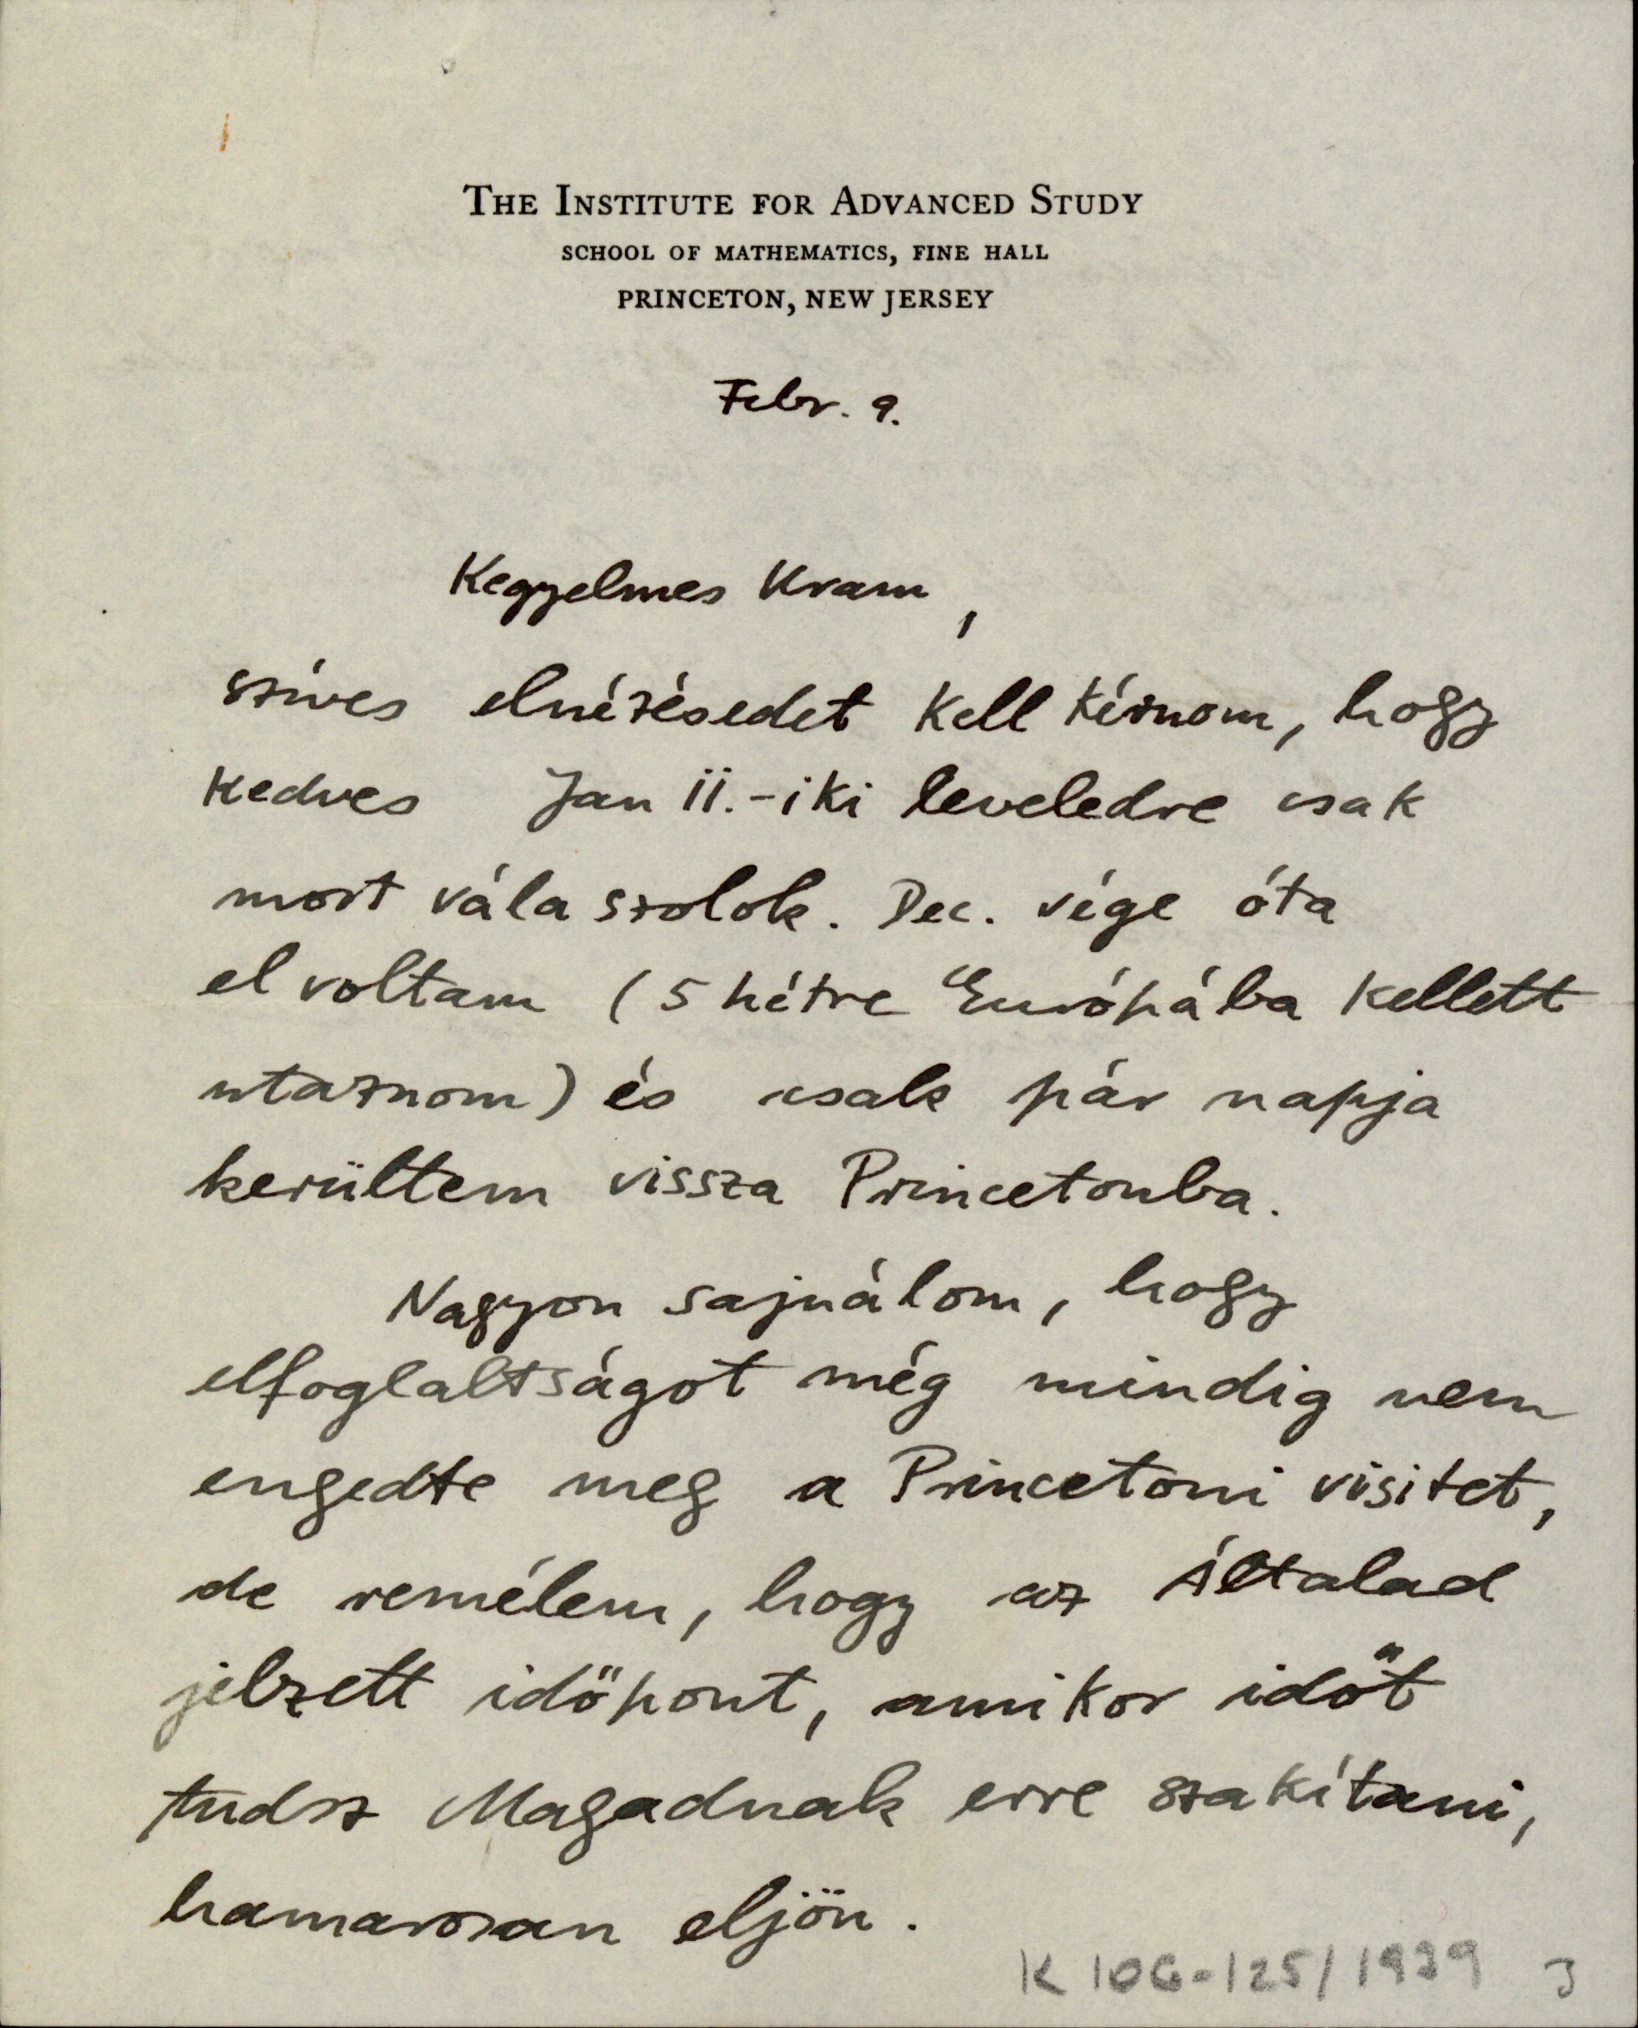 THE INSTITUTE FOR ADVANCED STUDY
SCHOOL OF MATHEMATICS, FINE HALL
PRINCETON, NEW JERSEY
Febr. 9.
Kegyelmes Uram,
szíves elnézésedet kell kérnom, hogy
kedves Jan 11.-iki leveledre csak
most válaszolok. Dec. vége óta
el voltam (5 hétre Európába kellett
utaznom) és csak pár napja
kerültem vissza Princetonba.
Nagyon sajnálom, hogy
elfoglaltságot még mindig nem
engedte meg a Princetoni visitet,
de remélem, hogy az Általad
jelzett időpont, amikor időt
tudsz Magadnak erre szakítani,
hamarosan eljön.
K 106-125/1939 3